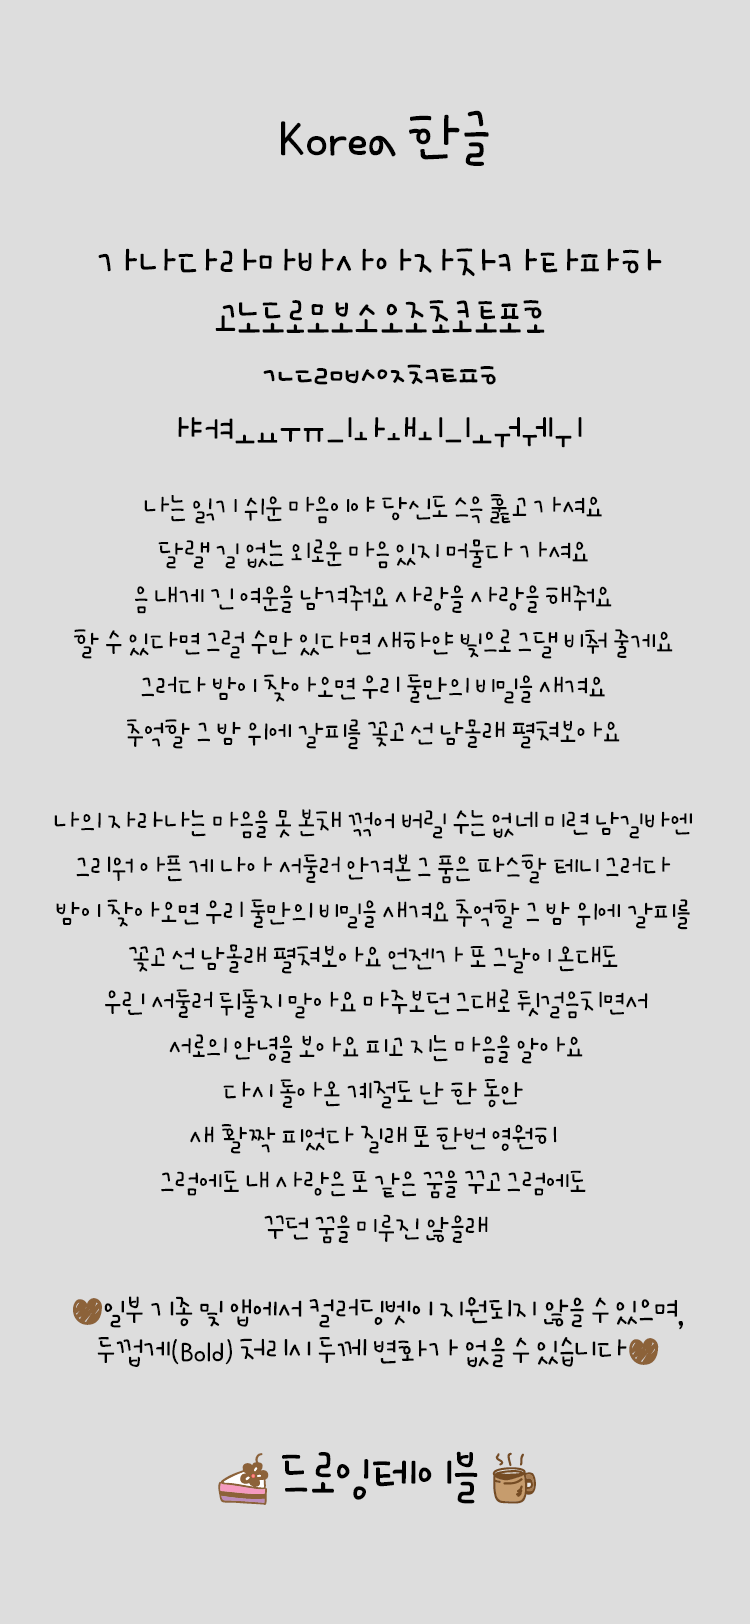 Korea 한글
가나다라마바사아자차카타파하
고노도로모보소오조초코토포호
ㄱㄴㄷㄹㅁㅂㅅㅇㅈㅊㅋㅌㅍㅎ
ㅑㅕㅕㅗㅛㅜㅠㅡㅣㅘㅙㅚㅢㅝㅞㅟ
나는 읽기 쉬운 마음이야 당신도 스윽 훑고 가셔요
달랠 길 없는 외로운 마음 있지 머물다 가셔요
음 내게 긴 여운을 남겨줘요 사랑을 사랑을 해줘요
할 수 있다면 그럴 수만 있다면 새하얀 빛으로 그댈 비춰 줄게요
그러다 밤이 찾아오면 우리 둘만의 비밀을 새겨요
추억할 그 밤 위에 갈피를 꽂고 선 남몰래 펼쳐보아요
나의 자라나는 마음을 못 본채 꺾어 버릴 수는 없네 미련 남길바엔
그리워 아픈 게 나아 서둘러 안겨본 그 품은 따스할 테니 그러다
밤이 찾아오면 우리 둘만의 비밀을 새겨요 추억할 그 밤 위에 갈피를
꽂고 선 남몰래 펼쳐보아요 언젠가 또 그날이 온대도
우린 서둘러 뒤돌지 말아요 마주보던 그대로 뒷걸음치면서
서로의 안녕을 보아요 피고 지는 마음을 알아요
다시 돌아온 계절도 난 한 동안
새 활짝 피었다 질래 또 한번 영원히
그럼에도 내 사랑은 또 같은 꿈을 꾸고 그럼에도
꾸던 꿈을 미루진 않을래
일부 기종 및 앱에서 컬러딩벳이 지원되지 않을 수 있으며,
두껍게(Bold) 처리시 두께 변화가 없을 수 있습니다
드로잉테이블